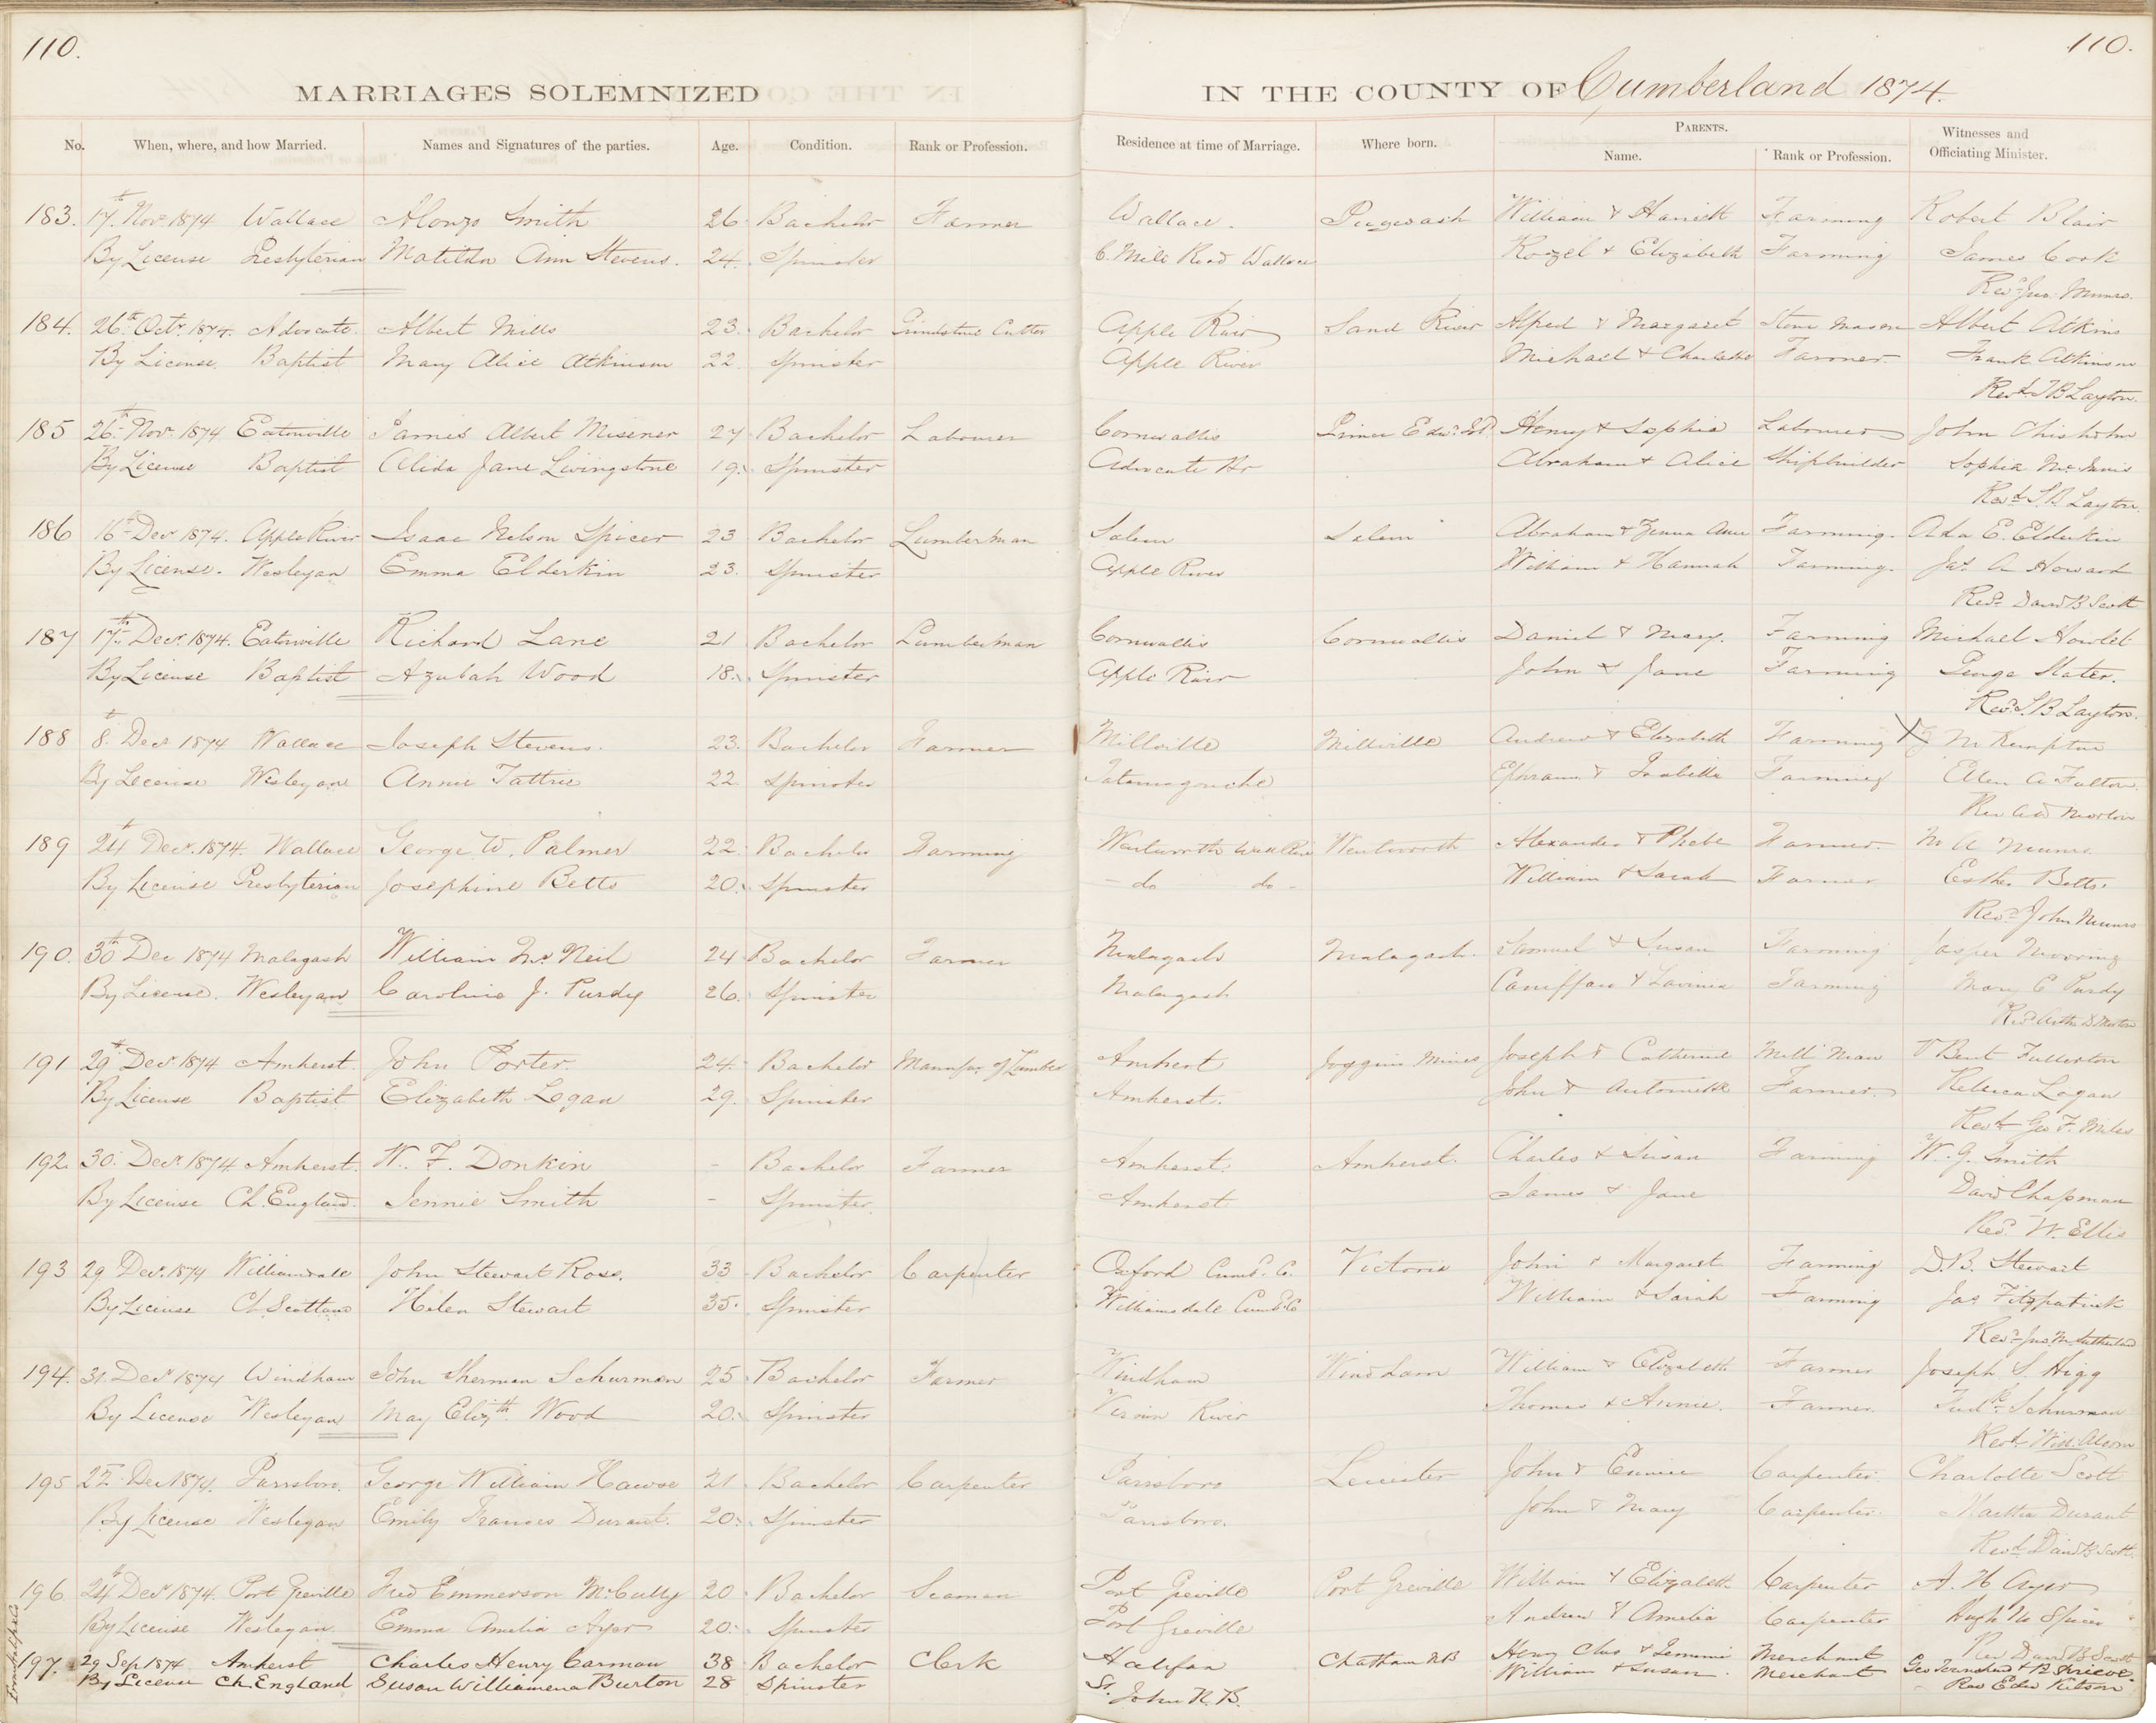 110.
110.
MARRIAGES SOLEMNIZED IN THE COUNTY OF Cumberland 1874.
No. When, where, and how Married. Names and Signatures of the parties. Age. Condition. Rank or Profession. Residence at time of Marriage. Where born. PARENTS. Name. Rank or Profession. Witnesses and Officiating Minister.
183. 17th Novr 1874 Wallace Alonzo Smith 26 Bachelor Farmer Wallace. Pugwash William & Harriett Farming Robert Blair
By License Presbyterian Matilda Ann Stevens. 24. Spinster 6. Mile Road Wallace & Elizabeth Farming James Cook
Revd Jno. Munro.
184. 26th Octr. 1874. Advocate. Albert Mills 23. Bachelor Grindstone Cutter Apple River Sand River Alfred & Margaret Stone Mason Albert Atkins
By License. Baptist Mary Alice Atkinson 22 Spinster Apple River Michael & Charlotte Farmer. Frank Atkinson
Revd. S B Layton.
185 26th Novr. 1874 Eatonville James Albert Misener 27 Bachelor Labourer Cornwallis Prince Edwd. Isd. Henry & Sophia Labourer John Chisholm
By License Baptist Alida Jane Livingstone 19. Spinster Advocate Hr Abraham & Alice Shipbuilder Sophia
Revd. S. B. Layton.
186 16th Decr 1874. Apple River Isaac Nelson Spicer 23 Bachelor Lumberman Salem Salem Abraham & Ann Farming. Ada E. Elderkin
By License. Wesleyan Emma Elderkin 23. Spinster Apple River William & Hannah Farming. Jas. A Howard
Revd. David B Scott
187 17th Decr. 1874. Eatonville Richard Lane 21 Bachelor Lumberman Cornwallis Cornwallis Daniel & Mary. Farming Michael Howlet
By License Baptist Azubah Wood 18. Spinster Apple River John & Jane Farming George Slater.
Revd. S. B Layton.
188 8th Decr 1874 Wallace Joseph Stevens. 23. Bachelor Farmer Millville Millville Andrew & Elizabeth Farming X Kempton
By License Wesleyan Annie Tattrie 22. Spinster Tatamagouche Ephraim & Isabella Farming Ellen A Fulton.
Rev A D Morton
189 24th Decr. 1874. Wallace George W. Palmer 22. Bachelor Farming Wentworth Wall River Wentworth Alexander & Phebe Farmer. M A Munro.
By License Presbyterian Josephine Betts 20. Spinster - do do - William & Sarah Farmer Esther Betts.
Revd. John Munro
190. 30th Dec 1874 Malagash William McNeil 24 Bachelor Farmer Malagash Malagash. Samuel & Susan Farming Jasper Mooring
By License. Wesleyan Caroline J. Purdy 26. Spinster Malagash & Lavinia Farming Mary E Purdy
Revd Arthr D Morton
191 29th Decr 1874 Amherst. John Porter. 24. Bachelor Manufur. of Lumber Amherst Joggins Mines Joseph & Catherine Mill Man T Bent Fullerton
By License Baptist Elizabeth Logan 29. Spinster Amherst. John & Antoinette Farmer. Rebecca Logan
Revd Geo F. Miles
192. 30. Decr. 1874 Amherst. W. F. Donkin - Bachelor Farmer Amherst. Amherst. Charles & Susan Farming W. G. Smith
By License Ch. England. Jennie Smith - Spinster. Amherst James & Jane David Chapman
Revd. W. Ellis
193 29 Decr. 1874 Williamsdale John Stewart Ross. 33 Bachelor Carpenter Oxford Cumbd. C. Victoria John & Margaret Farming D. B. Stewart
By License Ch. Scotland Helen Stewart 35. Spinster Williamsdale Cumbd. Co William & Sarah Farming Jas. Fitzpatrick
Revd. Jno. M. Sutherland
194. 31. Decr 1874 Windham John Sherman Schurman 25 Bachelor Farmer Windham Windham William & Elizabeth Farmer Joseph S. Higg
By License Wesleyan May Elizth. Wood 20. Spinster River Thomas & Annie. Farmer. Fredk. Schurman
Revd. Will. Alcorn
195 22nd Dec 1874. Parrsboro. George William Hawse 21 Bachelor Carpenter Parrsboro Leicester John & Eunice Carpenter. Charlotte Scott
By License Wesleyan Emily Frances Durant. 20. Spinster Parrsboro. John & Mary Carpenter. Martha Durant
Revd. David B Scott.
196. 24th Decr 1874. Port Greville Fred Emmerson McCully 20 Bachelor Seaman Port Greville Port Greville William & Elizabeth Carpenter A. H Ayer
By License Wesleyan Emma Amelia Ayer 20. Spinster Port Greville Andrew & Amelia Carpenter Hugh W Spicer
Rev David B Scott
197. 29 Sep 1874 Amherst Charles Henry Carman 38 Bachelor Clerk Halifax Chatham N B Henry Chas & Jemima Merchant Geo Townshend & B
By License Ch. England Susan Williamena Burton 28 Spinster St. John N. B. William & Susan. Merchant Rev Edw Kilson